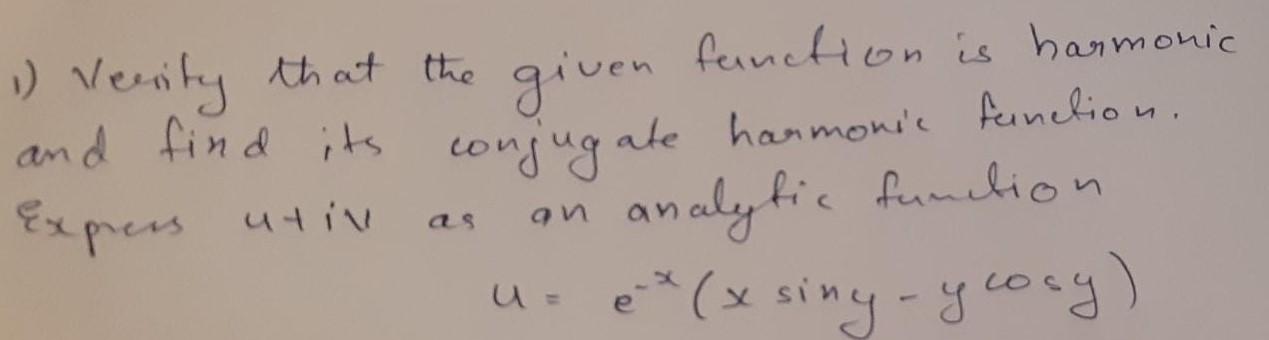 1) Verify that the given function is harmonic
and find its conjugate harmonic function.
Express u+iv as an analytic function
u = e⁻ˣ (x siny - y cosy)